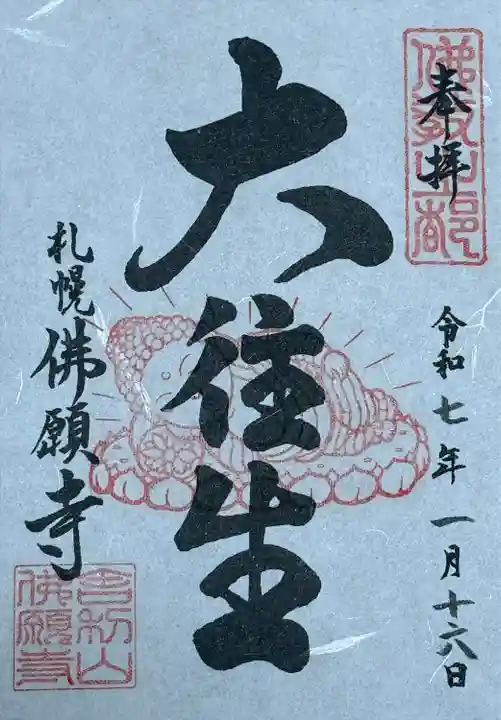 奉拝
令和七年一月十六日
大往生
札幌佛願寺
佛願寺